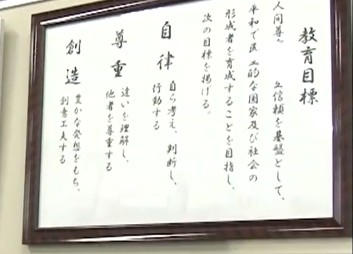 教育目標
人間尊 信頼を基盤として、
平和で民 的な国家及び社会の
形成者を育成することを目指し、
次の目標を掲げる。
自律 自ら考え、判断し、
行動する
尊重 違いを理解し、
他者を尊重する
創造 豊かな発想をもち、
創意工夫する